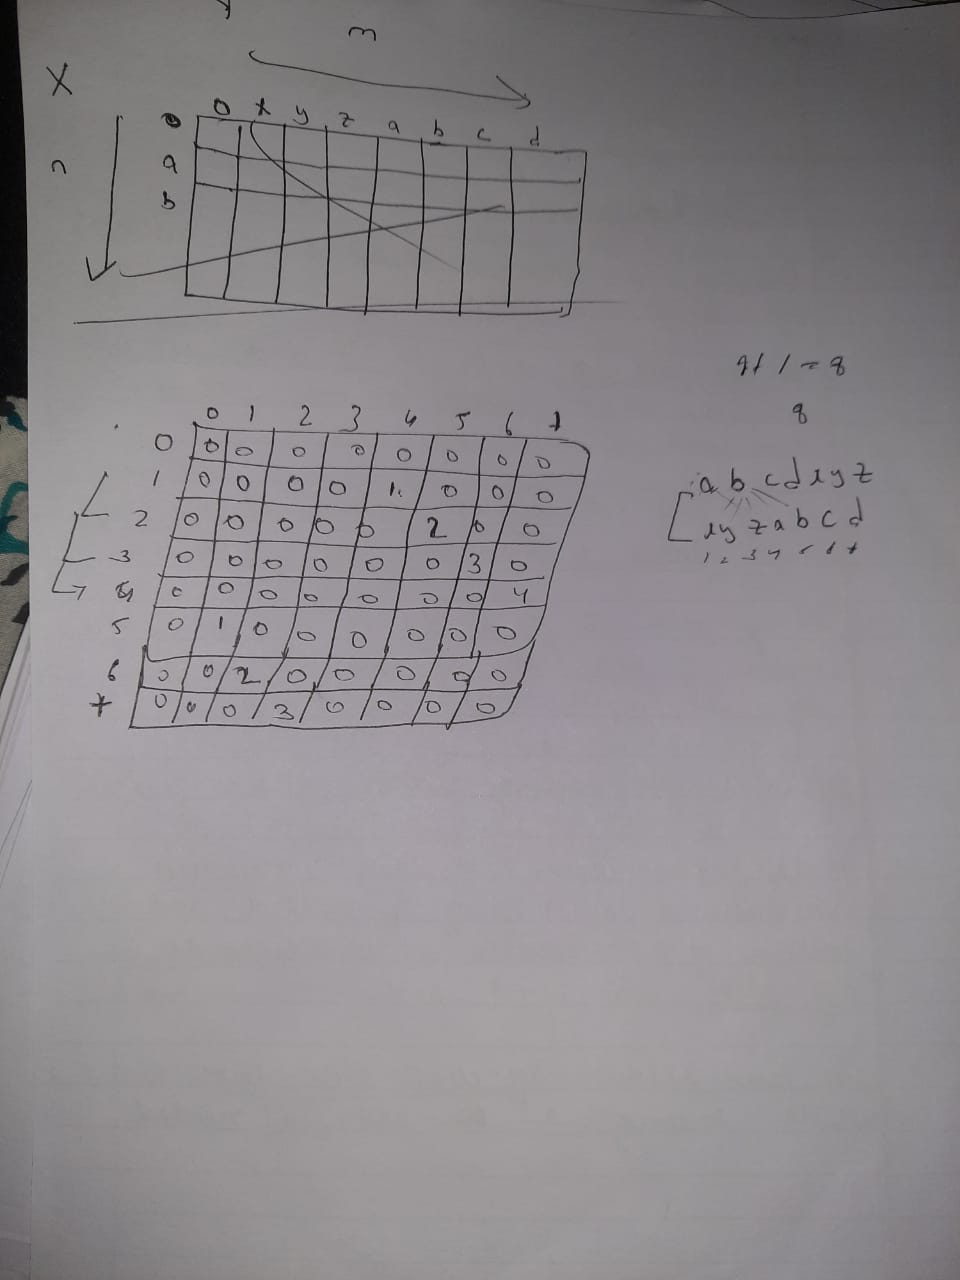 m
X
0 x y z a b c d
n
a
b
7+1=8
8
0 1 2 3 4 5 6 7
0 0 0 0 0 0 0 0 0
1 0 0 0 0 1 0 0 0
2 0 0 0 0 0 2 0 0
3 0 0 0 0 0 0 3 0
4 0 0 0 0 0 0 0 4
5 0 1 0 0 0 0 0 0
6 0 0 2 0 0 0 0 0
7 0 0 0 3 0 0 0 0
a b c d x y z
x y z a b c d
1 2 3 4 5 6 7